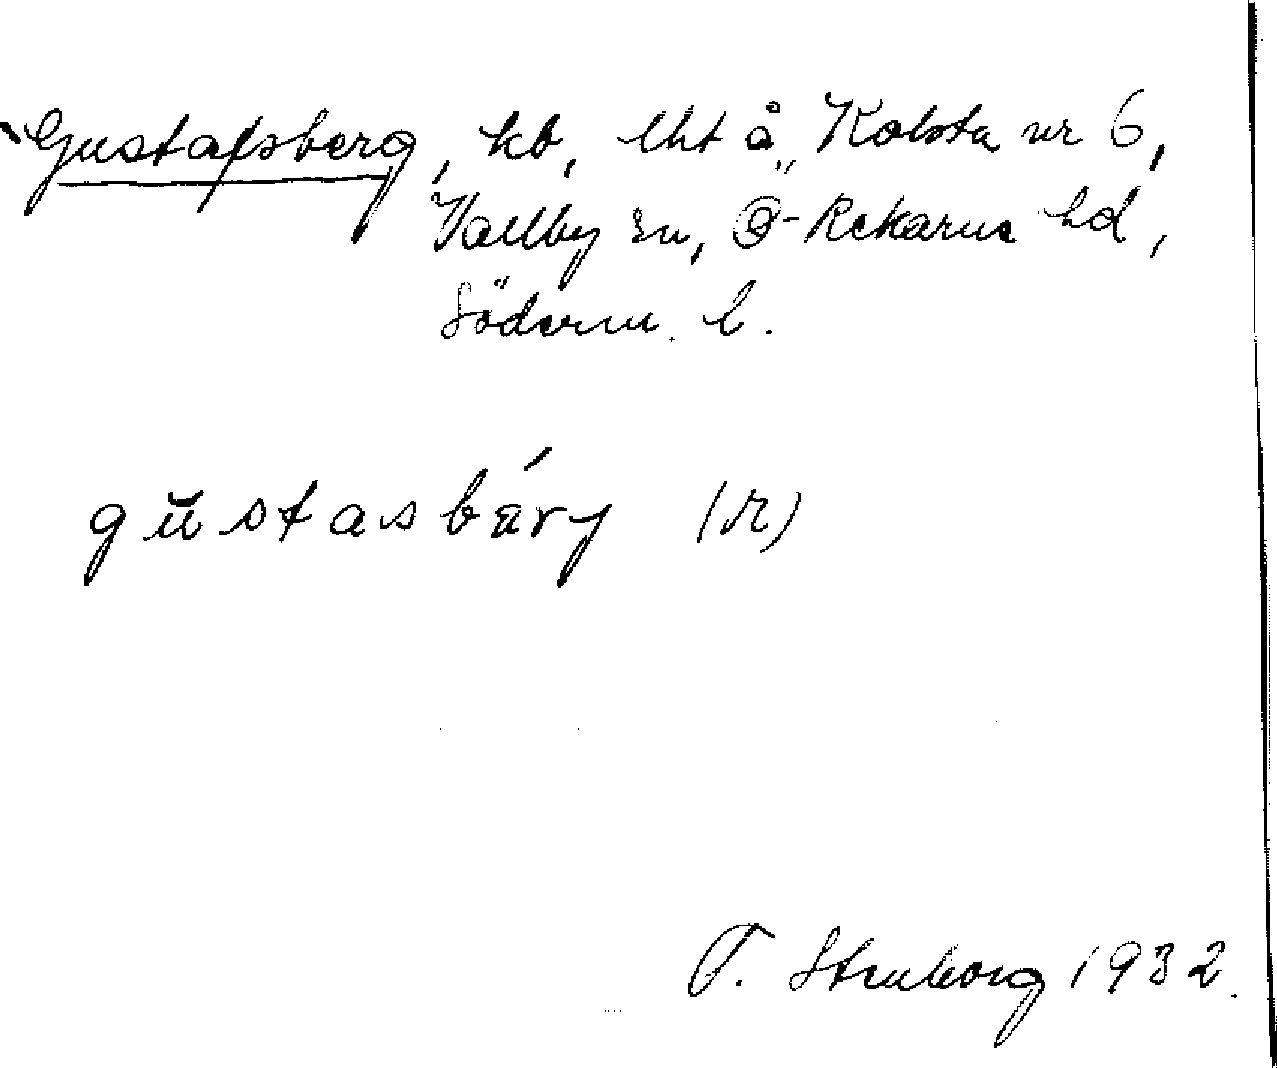 Gustafsberg, kb, lht å Kolsta nr 6,
Vallby sn, Ö-Rekarne hd,
Söderm. l.
gustasbä́rj (r)
T. Stenborg 1932.